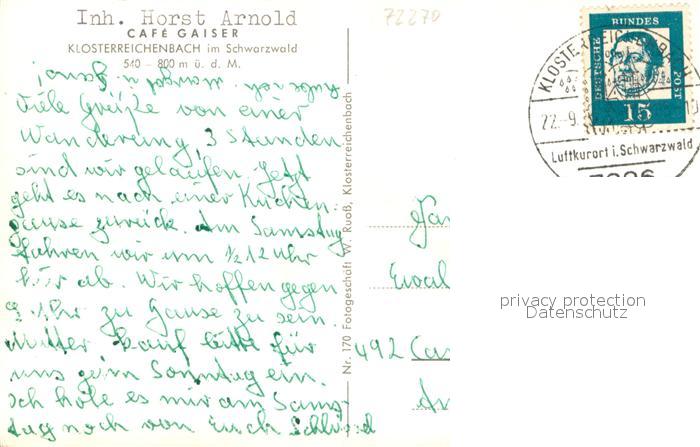 Inh. Horst Arnold
72270
CAFÉ GAISER
KLOSTERREICHENBACH im Schwarzwald
540 - 800 m ü. d. M.
Viele Grüße von einer
Wanderung, 3 Stunden
sind wir gelaufen. Jetzt
geht es nach einer Kuchen-
pause zurück. Am Samstag
fahren wir um ½ 12 Uhr
hier ab. Wir hoffen gegen
Uhr zu Hause zu sein.
Mutter kauf bitte für
uns zum Sonntag ein.
Ich hole es mir am Sams-
tag noch von Euch
Nr. 170 Fotogeschäft W. Ruoß, Klosterreichenbach
DEUTSCHE BUNDES POST
15
KLOSTERREICHENBACH
22.-9.
Luftkurort i. Schwarzwald
Ewal
492
privacy protection
Datenschutz